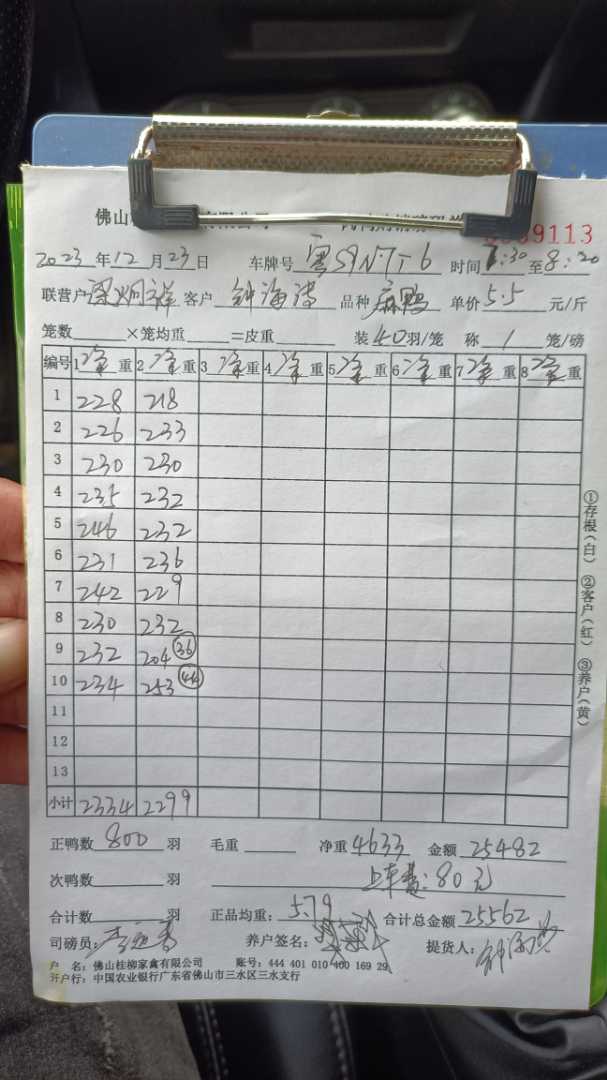 佛山
9113
2023 年 12 月 23 日 车牌号 时间 7:30 至 8:20
联营户 客户 钟海涛 品种 麻鸭 单价 5.5 元/斤
笼数 ×笼均重 =皮重 装 40 羽/笼 称 1 笼/磅
编号 1 净 重 2 净 重 3 净 重 4 净 重 5 净 重 6 净 重 7 净 重 8 净 重
1 228 218
2 226 233
3 230 230
4 235 232
5 246 232
6 231 236
7 242 229
8 230 232
9 232 204 36
10 234 253 44
11
12
13
小计 2334 2299
①存根(白) ②客户(红) ③养户(黄)
正鸭数 800 羽 毛重 净重 4633 金额 25482
次鸭数 羽 上车费:80元
合计数 羽 正品均重: 5.79 合计总金额 25562
司磅员: 养户签名: 提货人:
户 名: 佛山桂柳家禽有限公司 账号: 444 401 010 400 169 29
开户行: 中国农业银行广东省佛山市三水区三水支行